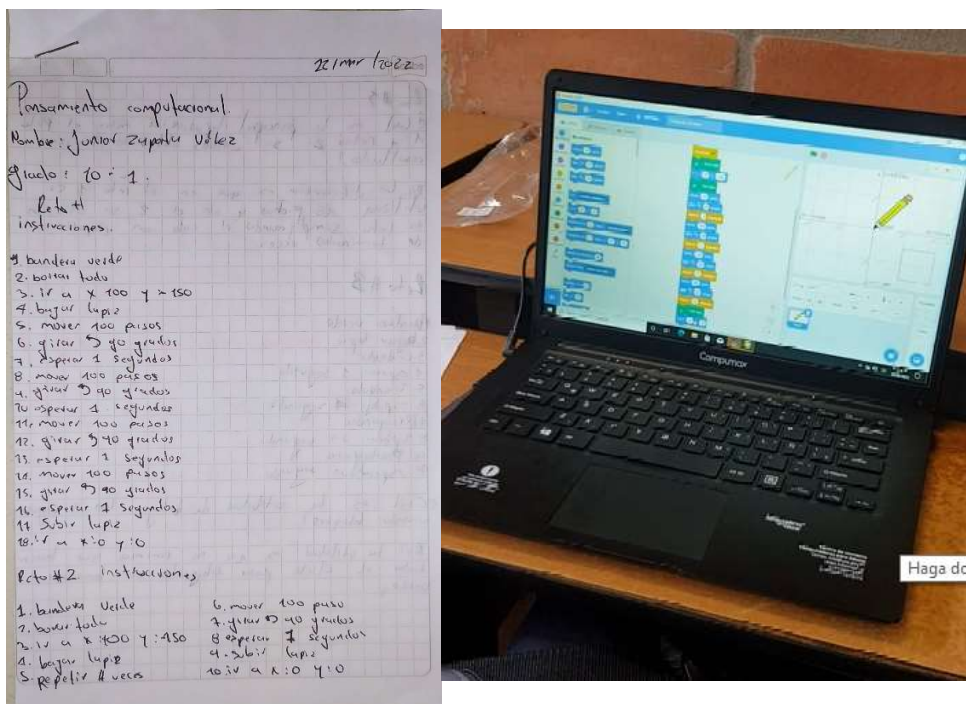 22/mar/2022
Pensamiento computacional.
Nombre: Junior Zapata Vélez
Grado: 10-1.
Reto #1
instrucciones.
1. bandera verde
2. borrar todo
3. ir a x 100 y -150
4. bajar lapiz
5. mover 100 pasos
6. girar 90 grados
7. esperar 1 segundos
8. mover 100 pasos
9. girar 90 grados
10 esperar 1 segundos
11. mover 100 pasos
12. girar 90 grados
13. esperar 1 segundos
14. mover 100 pasos
15. girar 90 grados
16. esperar 1 segundos
17 Subir lapiz
18. ir a x:0 y:0
Reto #2 instrucciones
1. bandera verde
2. borrar todo
3. ir a x:100 y:-150
4. bajar lapiz
5. Repetir 4 veces
6. mover 100 paso
7. girar 90 grados
8 esperar 1 segundos
9. Subir lapiz
10. ir a x:0 y:0
Compumax
Haga do